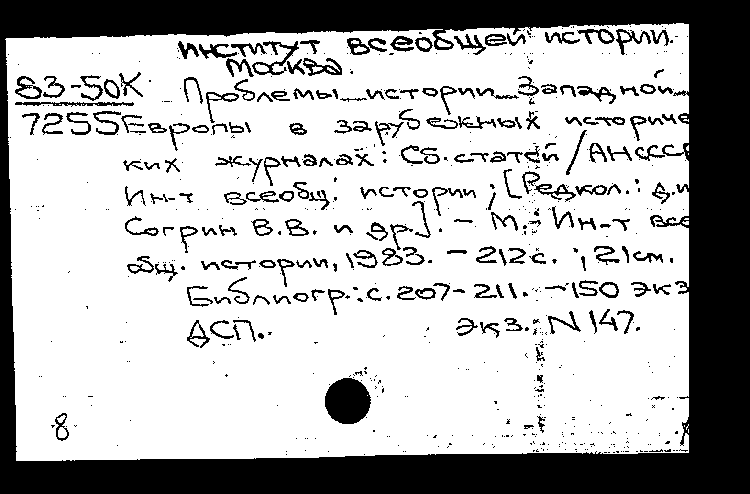 институт всеобщей истории.
Москва.
83-50К Проблемы истории Западной
7255 Европы в зарубежных историче
ких журналах: Сб.статей / АН СССР
Ин-т всеобщ. истории; [Редкол.: д.и
Согрин В.В. и др.]. - М.- Ин-т все
общ. истории, 1983. - 212с. ; 21см.
Библиогр.: с.207-211. - 150 экз
ДСП. экз. N 147.
8